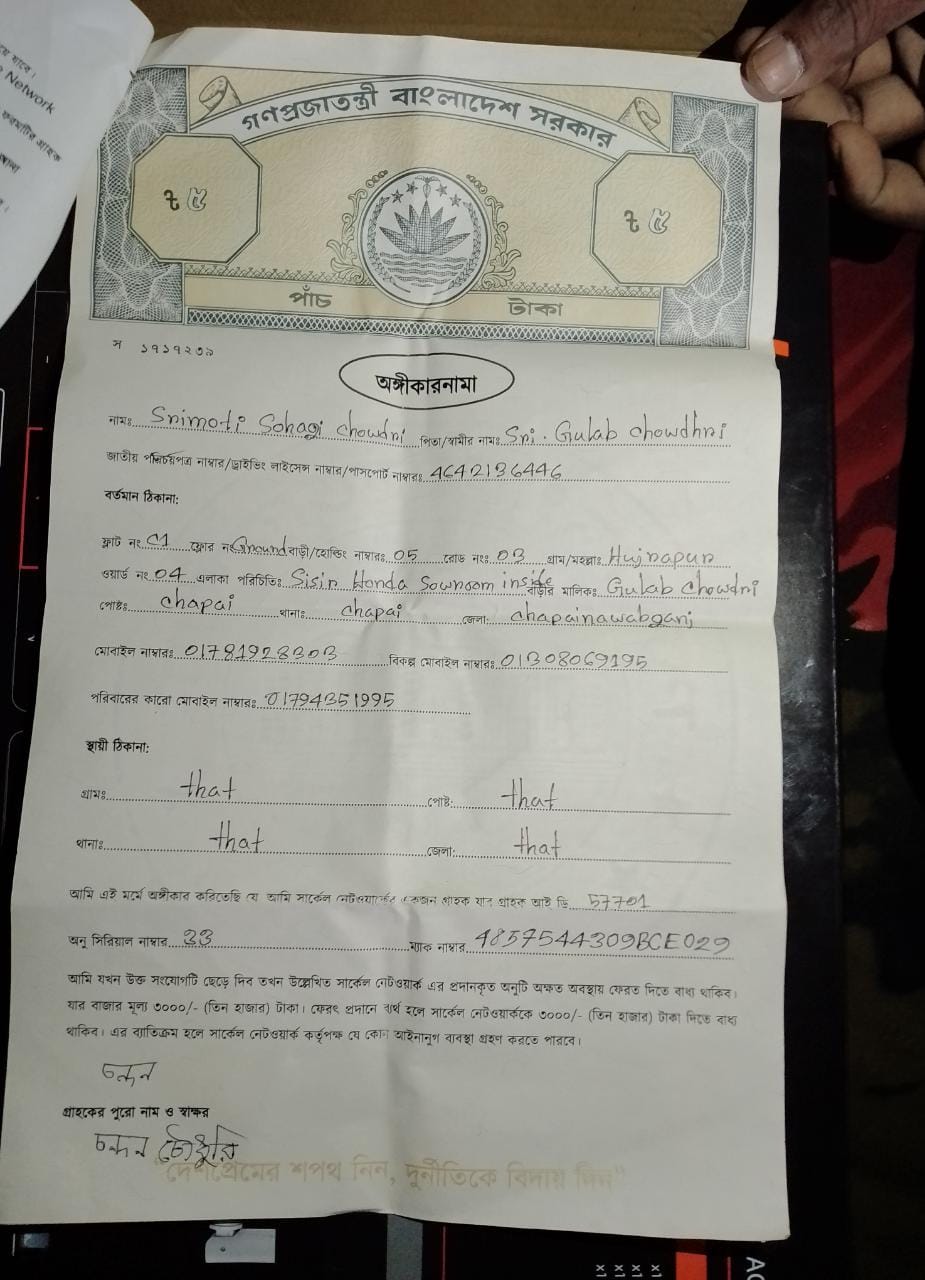 য় যাবে।
Network
গণপ্রজাতন্ত্রী বাংলাদেশ সরকার
৳ ৫
৳ ৫
পাঁচ টাকা
স ১৭১৭২৩৯
অঙ্গীকারনামা
নামঃ Srimoti Sohagi Chowdri পিতা/স্বামীর নামঃ Sri. Gulab chowdhri
জাতীয় পরিচয়পত্র নাম্বার/ড্রাইভিং লাইসেন্স নাম্বার/পাসপোর্ট নাম্বারঃ 4642136446
বর্তমান ঠিকানা:
ফ্লাট নং C1 ফ্লোর নং Ground বাড়ী/হোল্ডিং নাম্বারঃ 05 রোড নংঃ 03 গ্রাম/মহল্লাঃ Hujrapur
ওয়ার্ড নং 04 এলাকা পরিচিতিঃ Sisir Honda Sowroom inside বাড়ীর মালিকঃ Gulab Chowdri
পোষ্টঃ chapai থানাঃ chapai জেলা: chapainawabganj
মোবাইল নাম্বারঃ 01781928303 বিকল্প মোবাইল নাম্বারঃ 01308069195
পরিবারের কারো মোবাইল নাম্বারঃ 01794351995
স্থায়ী ঠিকানা:
গ্রামঃ that পোষ্ট: that
থানাঃ that জেলা: that
আমি এই মর্মে অঙ্গীকার করিতেছি যে আমি সার্কেল নেটওয়ার্কের একজন গ্রাহক যার গ্রাহক আই ডি 57701
অনু সিরিয়াল নাম্বার 33 ম্যাক নাম্বার 4857544309BCE029
আমি যখন উক্ত সংযোগটি ছেড়ে দিব তখন উল্লেখিত সার্কেল নেটওয়ার্ক এর প্রদানকৃত অনুটি অক্ষত অবস্থায় ফেরত দিতে বাধ্য থাকিব।
যার বাজার মূল্য ৩০০০/- (তিন হাজার) টাকা। ফেরৎ প্রদানে ব্যর্থ হলে সার্কেল নেটওয়ার্ককে ৩০০০/- (তিন হাজার) টাকা দিতে বাধ্য
থাকিব। এর ব্যতিক্রম হলে সার্কেল নেটওয়ার্ক কর্তৃপক্ষ যে কোন আইনানুগ ব্যবস্থা গ্রহণ করতে পারবে।
চন্দন
গ্রাহকের পুরো নাম ও স্বাক্ষর
চন্দন চৌধুরি
"দেশপ্রেমের শপথ নিন, দুর্নীতিকে বিদায় দিন"